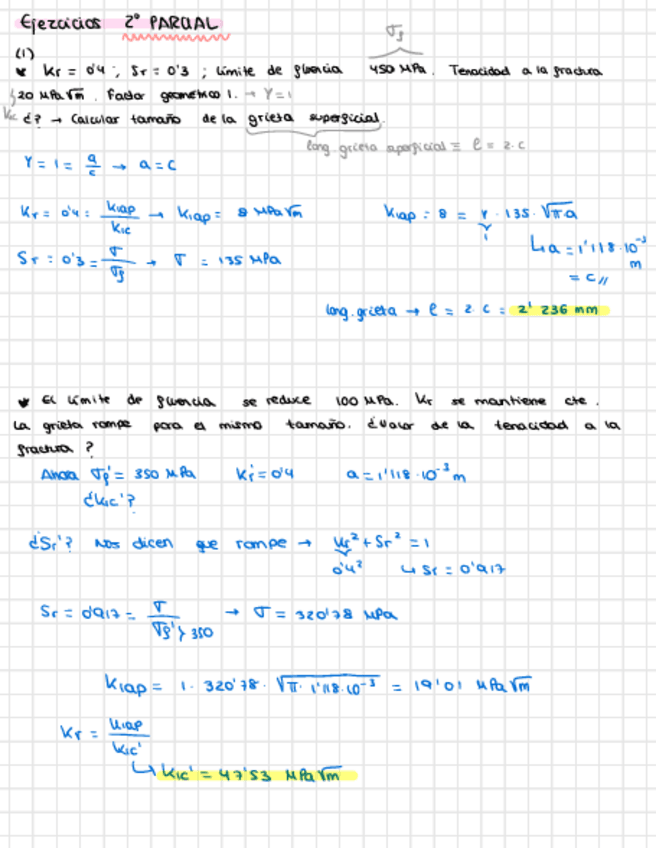 Ejercicios 2º PARCIAL
(1)
Kr = 0'4 ; Sr = 0'3 ; Límite de fluencia 450 MPa. Tenacidad a la fractura
σf
20 MPa√m . Factor geométrico 1. → Y = 1
KIC ¿? → Calcular tamaño de la grieta superficial.
long. grieta superficial ≡ l = 2·c
Y = 1 = a/c → a = c
Kr = 0'4 = KIap/KIC → KIap = 8 MPa√m
KIap = 8 = Y · 135 · √π·a
1
Sr = 0'3 = σ/σf → σ = 135 MPa
↳ a = 1'118·10⁻³ m
= c //
long. grieta → l = 2·c = 2'236 mm
El límite de fluencia se reduce 100 MPa. Kr se mantiene cte.
La grieta rompe para el mismo tamaño. ¿Valor de la tenacidad a la
fractura?
Ahora σf' = 350 MPa Kr' = 0'4 a = 1'118·10⁻³ m
¿KIC'?
¿Sr'? Nos dicen que rompe → Kr² + Sr² = 1
0'4² ↳ Sr = 0'917
Sr = 0'917 = σ/σf' } 350 → σ = 320'78 MPa
KIap = 1 · 320'78 · √π·1'118·10⁻³ = 19'01 MPa√m
Kr = KIap/KIC'
↳ KIC' = 47'53 MPa√m